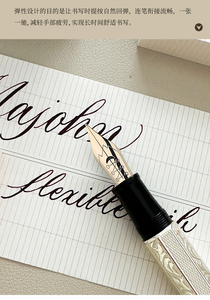 弹性设计的目的是让书写时提按自然回弹，连笔衔接流畅，一张
一弛，减轻手部疲劳，实现长时间舒适书写。
Majohn
flexible nib